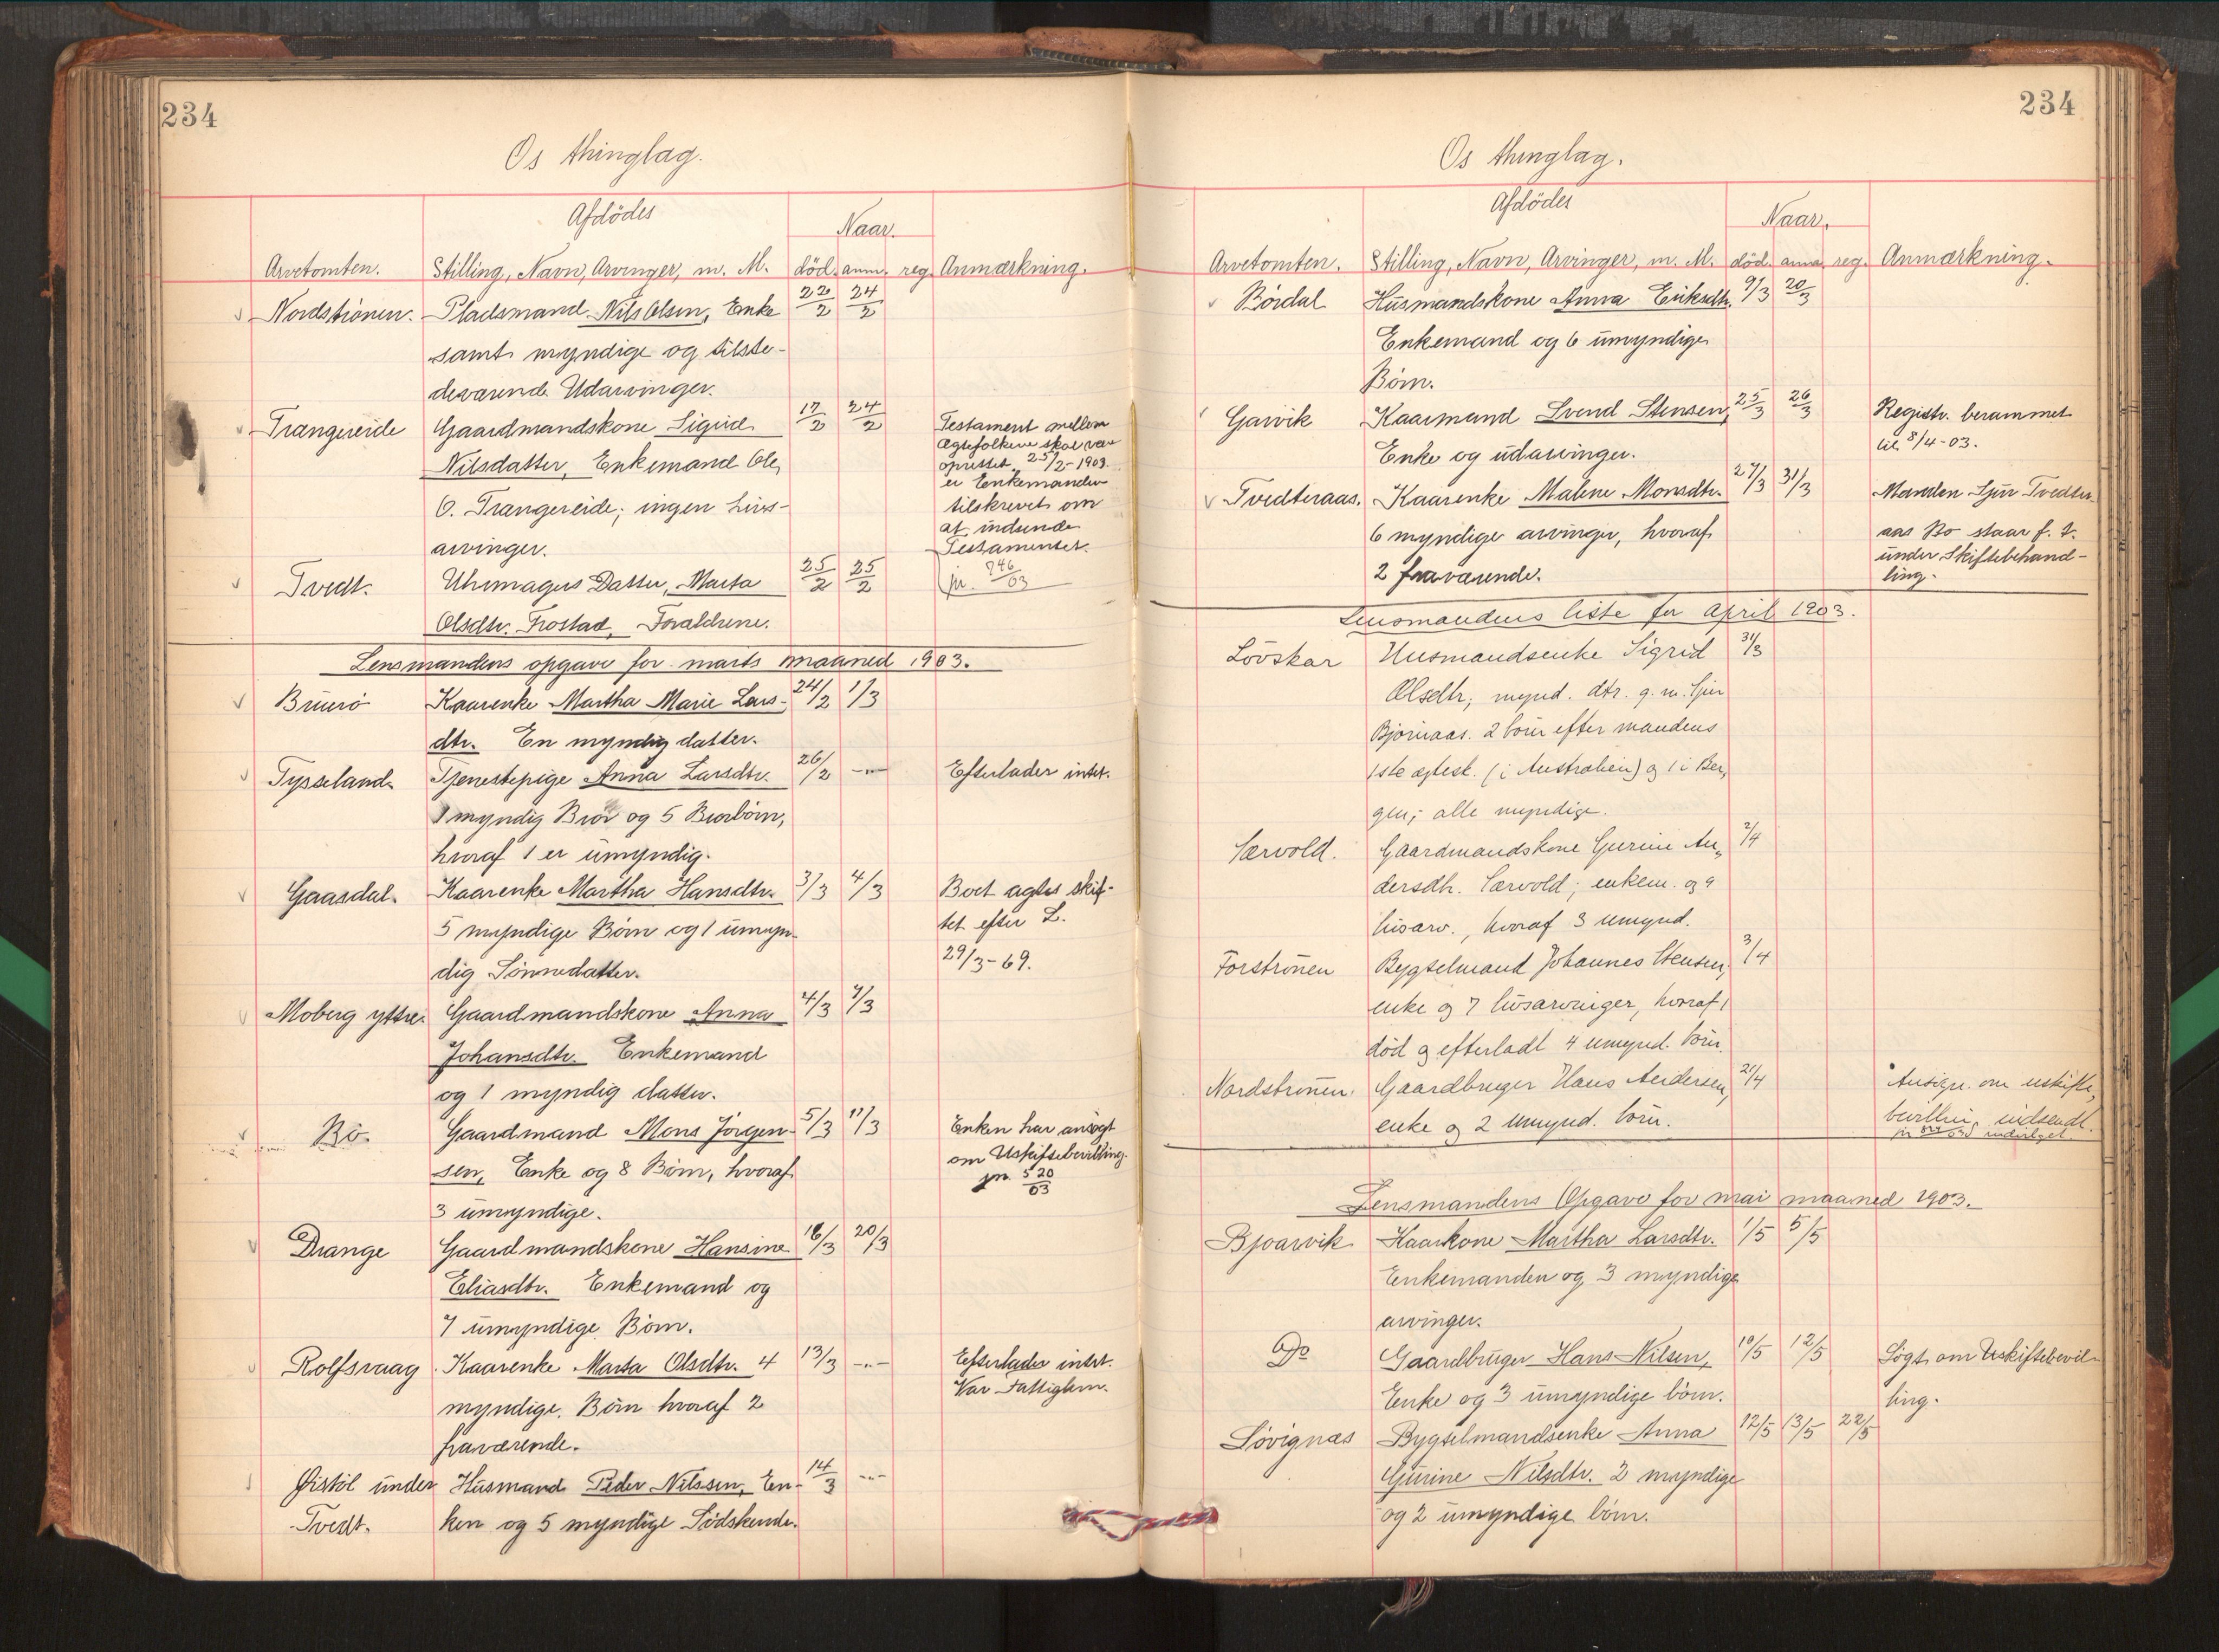 234
Os thinglag.
Afdödes
Naar.
Arvetomten. Stilling, Navn, Arvinger, m. M. död. anm. reg. Anmærkning.
Nordströnen. Pladsmand Nils Olsen, Enke 22/2 24/2
samt myndige og tilste-
deværende Udarvinger.
Trangereide Gaardmandskone Sigrid 17/2 24/2
Nilsdatter, Enkemand Ole
O. Trangereide; ingen Livs-
arvinger.
Testament mellem
Ægtefolkene skal være
oprettet. 25/2-1903.
er Enkemanden
tilskrevet om
at indsende
Testamentet.
jr. 746/03
Tvedt. Uhrmagers Datter, Marta 25/2 25/2
Olsdtr. Frostad, Forældrene.
Lensmandens opgave for marts maaned 1903.
Bruarö Kaarenke Martha Marie Lars- 24/2 1/3
dtr. En myndig datter.
Tysseland Tjenestepige Anna Larsdtr. 26/2 -"- Efterlader intet.
1 myndig Bror og 5 Brorbörn,
hvoraf 1 er umyndig.
Gaasdal. Kaarenke Martha Hansdtr. 3/3 4/3 Boet agtes skif-
5 myndige Börn og 1 umyn- tet efter L.
dig Sönnedatter. 29/3-69.
Moberg yttre. Gaardmandskone Anna 4/3 7/3
Johansdtr. Enkemand
og 1 myndig datter.
Bö. Gaardmand Mons Jörgen- 5/3 11/3 Enken har ansögt
sen, Enke og 8 Börn, hvoraf om Uskiftebevilling.
3 umyndige. jr. 520/03
Drange Gaardmandskone Hansine 16/3 20/3
Eliasdtr. Enkemand og
7 umyndige Börn.
Rolfsvaag Kaarenke Marta Olsdtr. 4 13/3 -"- Efterlader intet.
myndige Börn hvoraf 2 Var Fattiglem.
fraværende.
Öistöl under Husmand Peder Nilssen, En- 14/3 -"-
Tvedt. ken og 5 myndige Södskende.
234
Os thinglag.
Afdödes
Naar.
Arvetomten. Stilling, Navn, Arvinger, m. M. död. anm. reg. Anmærkning.
Bördal Husmandskone Anna Eriksdtr. 9/3 20/3
Enkemand og 6 umyndige
Börn.
Gaivik Kaarmand Svend Stensen, 25/3 26/3 Registr. berammet
Enke og udarvinger. til 8/4-03.
Tvedteraas. Kaarenke Malene Monsdtr. 27/3 31/3 Manden Sjur Tvedter-
6 myndige arvinger, hvoraf aas Bo staar f. t.
2 fraværende. under Skiftebehand-
ling.
Lensmandens liste for april 1903.
Lövskar Husmandsenke Sigrid 31/3
Olsdtr; mynd. dtr. g. m. Sjur
Björnaas. 2 börn efter mandens
1ste ægtesk. (i Australien) og 1 i Ber,
gen; alle myndige.
Særvold. Gaardmandskone Gurine An„ 2/4
dersdtr. Særvold; enkem. og 9
livsarv., hvoraf 3 umynd.
Forströnen Bygselmand Johannes Stensen, 3/4
enke og 7 livsarvinger, hvoraf 1
död og efterladt 4 umynd. börn.
Nordströnen. Gaardbruger Hans Andersen, 21/4 Ansögn. om uskifte,
enke og 2 umynd. börn. bevilling indsendt.
Lensmandens Opgave for mai maaned 1903.
Bjoarvik Kaarkone Martha Larsdtr. 1/5 5/5
Enkemanden og 3 myndige
arvinger.
Do Gaardbruger Hans Nilsen, 10/5 12/5 Sögt om Uskiftebevil-
Enke og 3 umyndige börn. ling.
Sövignæs Bygselmandsenke Anna 12/5 13/5 22/5
Gurine Nilsdtr. 2 myndige
og 2 umyndige börn.